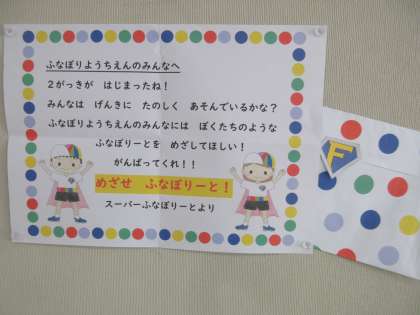 ふなぼりようちえんのみんなへ
2がっきが はじまったね!
みんなは げんきに たのしく あそんでいるかな?
ふなぼりようちえんのみんなには ぼくたちのような
ふなぼりーとを めざしてほしい!
がんばってくれ!!
めざせ ふなぼりーと!
スーパーふなぼりーとより
F